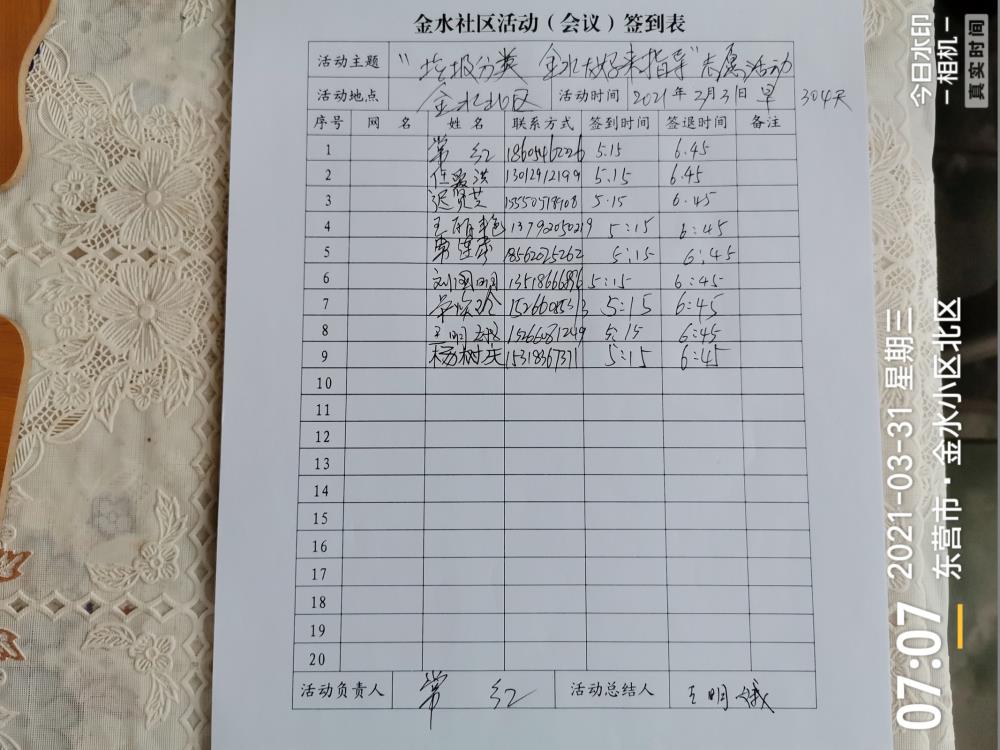 金水社区活动（会议）签到表
活动主题 "垃圾分类 金水大好来指导"志愿活动
活动地点 金水北区 活动时间 2021年2月31日 早 304天
序号 网 名 姓 名 联系方式 签到时间 签退时间 备注
1 常 红 18605462226 5.15 6.45
2 任爱洪 13012912199 5.15 6.45
3 5.15 6.45
4 13792050219 5:15 6:45
5 18562025262 5:15 6:45
6 刘国明 13518666896 5:15 6:45
7 5:15 6:45
8 王明 15266081249 5:15 6:45
9 杨树庆 15318367371 5:15 6:45
10
11
12
13
14
15
16
17
18
19
20
活动负责人 常 红 活动总结人 王明俄
今日水印
-相机-
真实时间
07:07
2021-03-31 星期三
东营市·金水小区北区